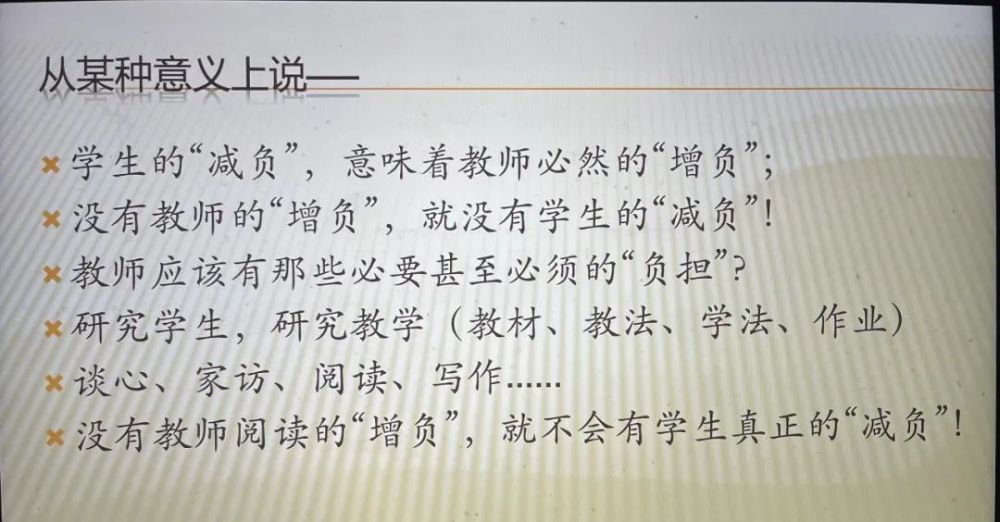 从某种意义上说——
学生的“减负”，意味着教师必然的“增负”；
没有教师的“增负”，就没有学生的“减负”！
教师应该有那些必要甚至必须的“负担”？
研究学生，研究教学（教材、教法、学法、作业）
谈心、家访、阅读、写作……
没有教师阅读的“增负”，就不会有学生真正的“减负”！